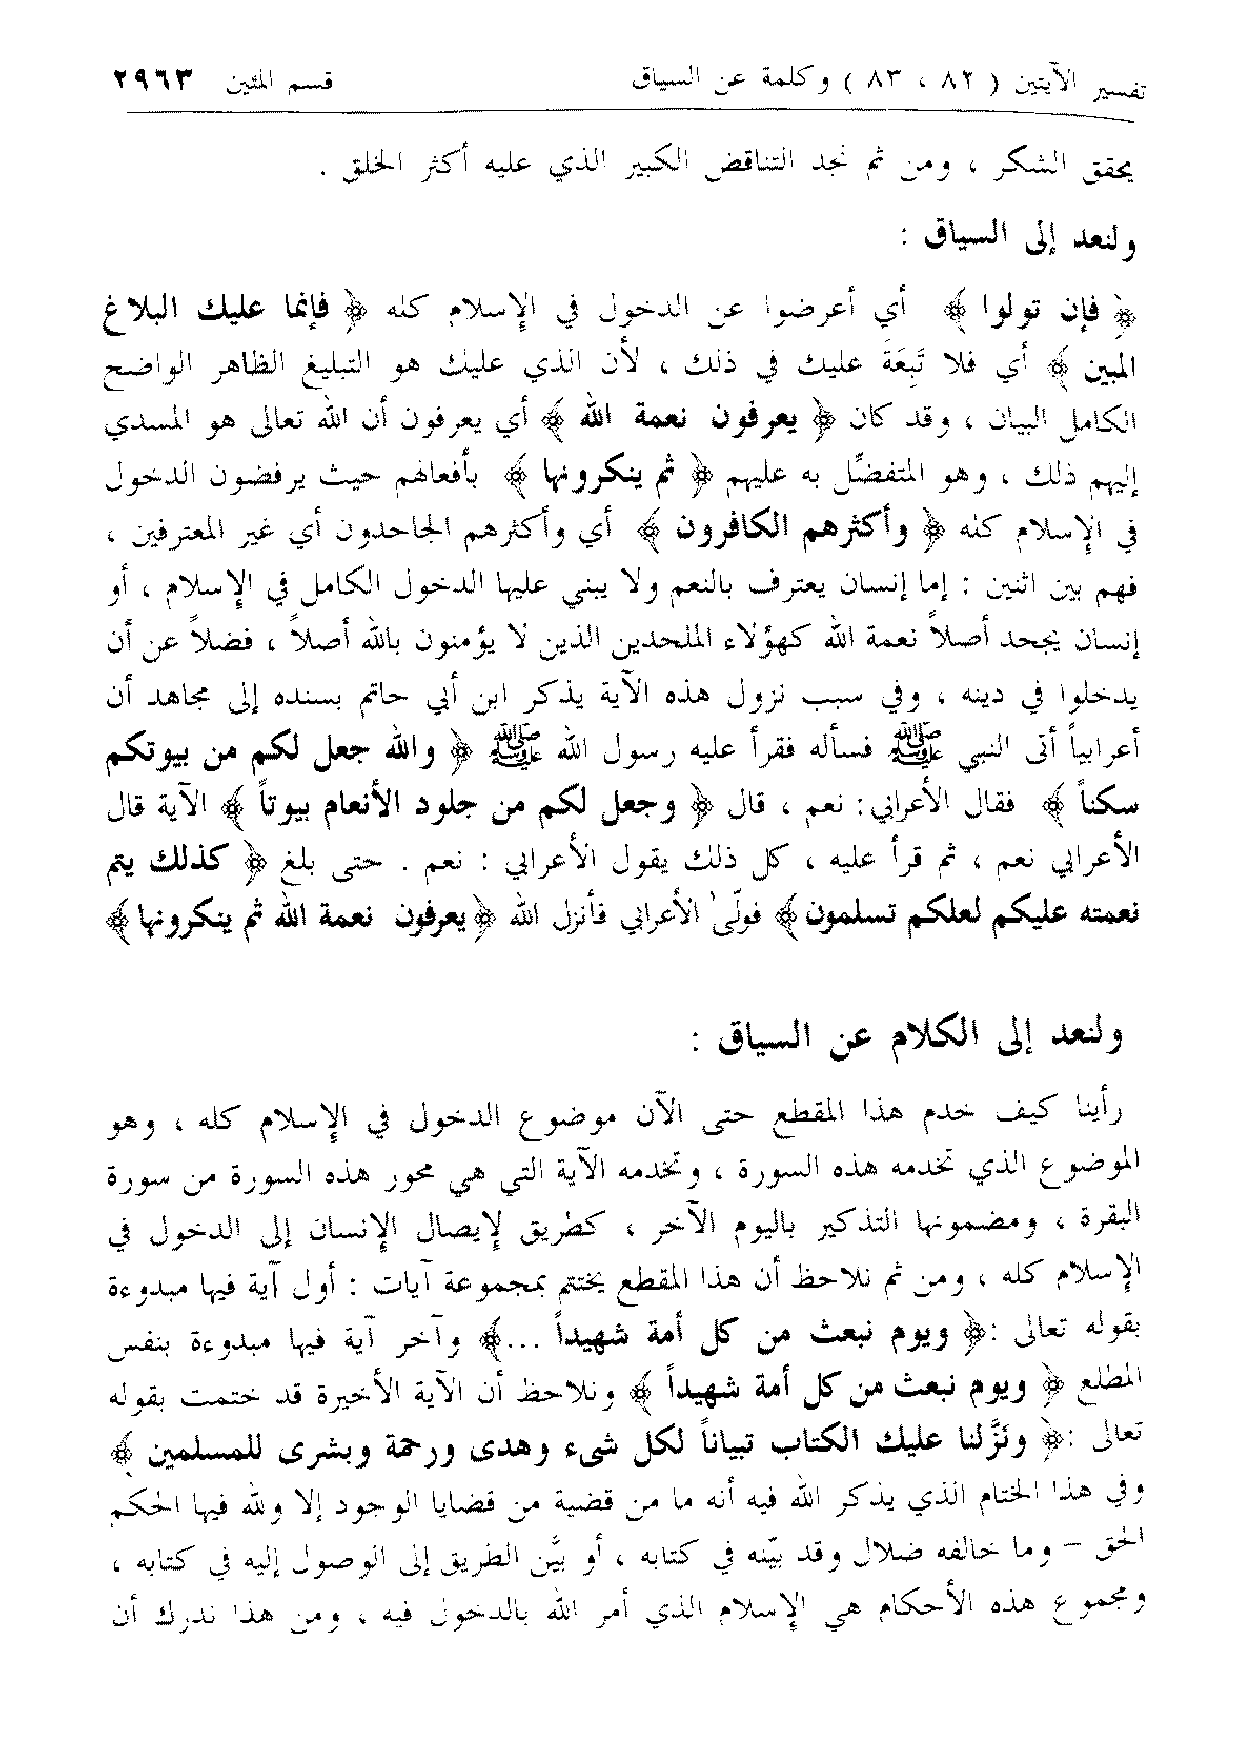 تفسير الآيتين ( ٨٢ ، ٨٣ ) وكلمة عن السياق قسم المئين ٢٩٦٣
يحقق الشكر ، ومن ثم نجد التناقض الكبير الذي عليه أكثر الخلق .
ولنعد إلى السياق :
﴿ فإن تولوا ﴾ أي أعرضوا عن الدخول في الإسلام كله ﴿ فإنما عليك البلاغ
المبين ﴾ أي فلا تَبِعَةَ عليك في ذلك ، لأن الذي عليك هو التبليغ الظاهر الواضح
الكامل البيان ، وقد كان ﴿ يعرفون نعمة الله ﴾ أي يعرفون أن الله تعالى هو المسدي
إليهم ذلك ، وهو المتفضّل به عليهم ﴿ ثم ينكرونها ﴾ بأفعالهم حيث يرفضون الدخول
في الإسلام كله ﴿ وأكثرهم الكافرون ﴾ أي وأكثرهم الجاحدون أي غير المعترفين ،
فهم بين اثنين : إما إنسان يعترف بالنعم ولا يبني عليها الدخول الكامل في الإسلام ، أو
إنسان يجحد أصلاً نعمة الله كهؤلاء الملحدين الذين لا يؤمنون بالله أصلاً ، فضلاً عن أن
يدخلوا في دينه ، وفي سبب نزول هذه الآية يذكر ابن أبي حاتم بسنده إلى مجاهد أن
أعرابياً أتى النبي ﷺ فسأله فقرأ عليه رسول الله ﷺ ﴿ والله جعل لكم من بيوتكم
سكناً ﴾ فقال الأعرابي: نعم ، قال ﴿ وجعل لكم من جلود الأنعام بيوتاً ﴾ الآية قال
الأعرابي نعم ، ثم قرأ عليه ، كل ذلك يقول الأعرابي : نعم . حتى بلغ ﴿ كذلك يتم
نعمته عليكم لعلكم تسلمون ﴾ فولّى الأعرابي فأنزل الله ﴿ يعرفون نعمة الله ثم ينكرونها ﴾
ولنعد إلى الكلام عن السياق :
رأينا كيف خدم هذا المقطع حتى الآن موضوع الدخول في الإسلام كله ، وهو
الموضوع الذي تخدمه هذه السورة ، وتخدمه الآية التي هي محور هذه السورة من سورة
البقرة ، ومضمونها التذكير باليوم الآخر ، كطريق لإيصال الإنسان إلى الدخول في
الإسلام كله ، ومن ثم نلاحظ أن هذا المقطع يختتم بمجموعة آيات : أول آية فيها مبدوءة
بقوله تعالى :﴿ ويوم نبعث من كل أمة شهيداً ...﴾ وآخر آية فيها مبدوءة بنفس
المطلع ﴿ ويوم نبعث من كل أمة شهيداً ﴾ ونلاحظ أن الآية الأخيرة قد ختمت بقوله
تعالى :﴿ ونَزَّلنا عليك الكتاب تبياناً لكل شيء وهدى ورحمة وبشرى للمسلمين ﴾
وفي هذا الختام الذي يذكر الله فيه أنه ما من قضية من قضايا الوجود إلا ولله فيها الحكم
الحق – وما خالفه ضلال وقد بيّنه في كتابه ، أو بيّن الطريق إلى الوصول إليه في كتابه ،
ومجموع هذه الأحكام هي الإسلام الذي أمر الله بالدخول فيه ، ومن هذا ندرك أن